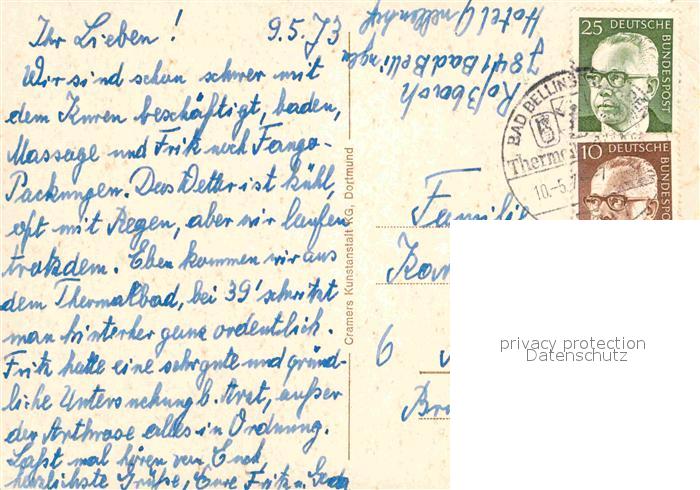 Ihr Lieben! 9.5.73
Wir sind schon schwer mit
dem Kuren beschäftigt, baden,
Massage und Fritz noch Fango-
Packungen. Das Wetter ist kühl,
oft mit Regen, aber wir laufen
trotzdem. Eben kommen wir aus
dem Thermalbad, bei 39° schwitzt
man hinterher ganz ordentlich.
Fritz hatte eine sehr gute und gründ-
liche Untersuchung b. Arzt, außer
der Arthrose alles in Ordnung.
Laßt mal hören von Euch
herzlichste Grüße, Eure Fritz u.
Cramers Kunstanstalt KG, Dortmund
Roßbach
7841 Bad Bellingen
Hotel
25 DEUTSCHE
BUNDESPOST
10 DEUTSCHE
BUNDESPOST
BAD BELLINGEN
Therma
10.-5.7
Famili
6
privacy protection
Datenschutz